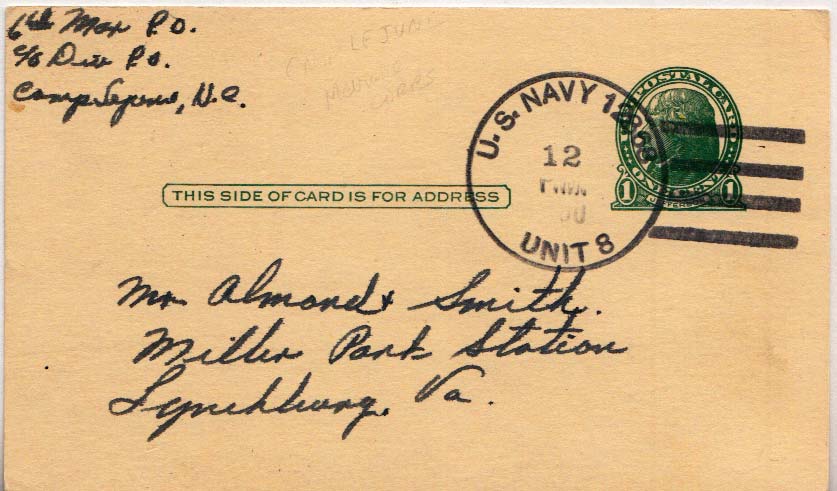 6th Mar P.O.
c/o Div P.O.
Camp Lejeune, N.C.
CAMP LEJUNE
MARINE
CORPS
U.S. POSTAL CARD
ONE CENT
1 1
JEFFERSON
U.S. NAVY 12868
12
UNIT 8
THIS SIDE OF CARD IS FOR ADDRESS
Mr Almond & Smith.
Miller Park Station
Lynchburg, Va.